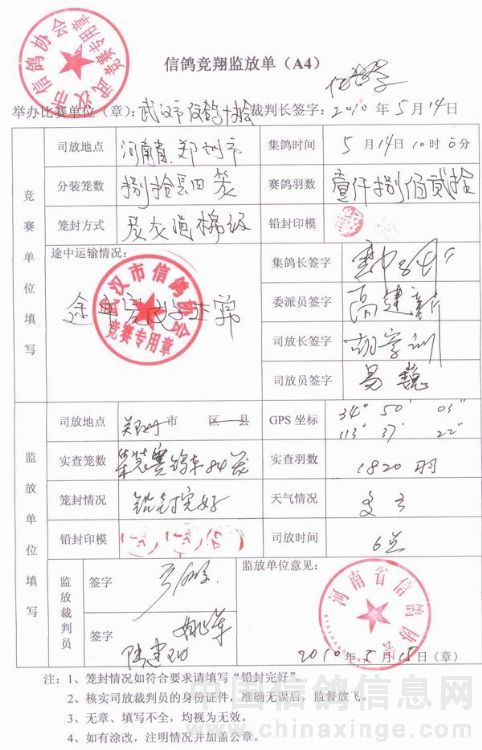 武汉市信鸽协会
竞赛专用章
信鸽竞翔监放单（A4）
举办比赛单位（章）：武汉市信鸽协会 裁判长签字： 2010年5月14日
竞赛单位填写
司放地点 河南省郑州市 集鸽时间 5月14日10时0分
分装笼数 捌拾肆笼 赛鸽羽数 壹仟捌佰贰拾
笼封方式 铅封印模
途中运输情况： 途中 集鸽长签字
武汉市信鸽协会
竞赛专用章
委派员签字 高建新
司放长签字 胡学训
司放员签字 易巍
监放单位填写
司放地点 郑州市 区 县 GPS坐标 34° 50' 03"
113° 37' 22"
实查笼数 84 实查羽数 1820羽
笼封情况 铅封完好 天气情况 多云
铅封印模 司放时间 6点
监放裁判员 签字 监放单位意见：
签字
河南省信鸽协会
2010年5月15日（章）
注：1、笼封情况如符合要求请填写“铅封完好”。
2、核实司放裁判员的身份证件，准确无误后，监督放飞。
3、无章、填写不全，均视为无效。
4、如有涂改，注明情况并加盖公章。
中国信鸽信息网
www.chinaxinge.com